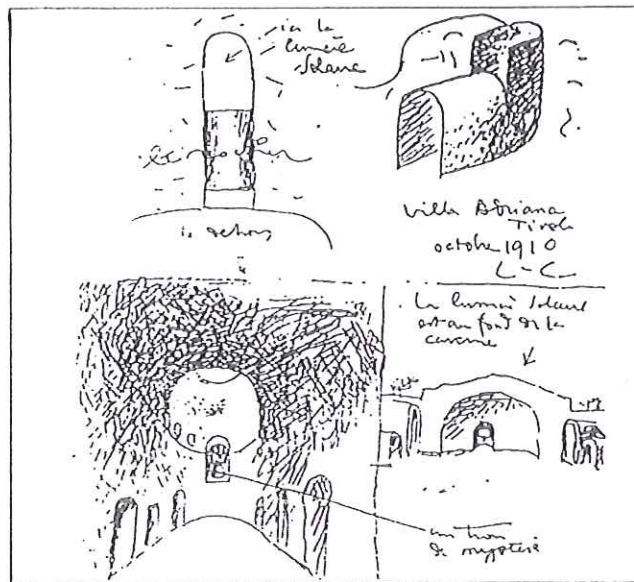 ici la
lumière
solaire
le noir
ici dehors
Villa Adriana
Tivoli
octobre 1910
L-C
La lumière solaire
est au fond de la
caverne
un trou
de mystère